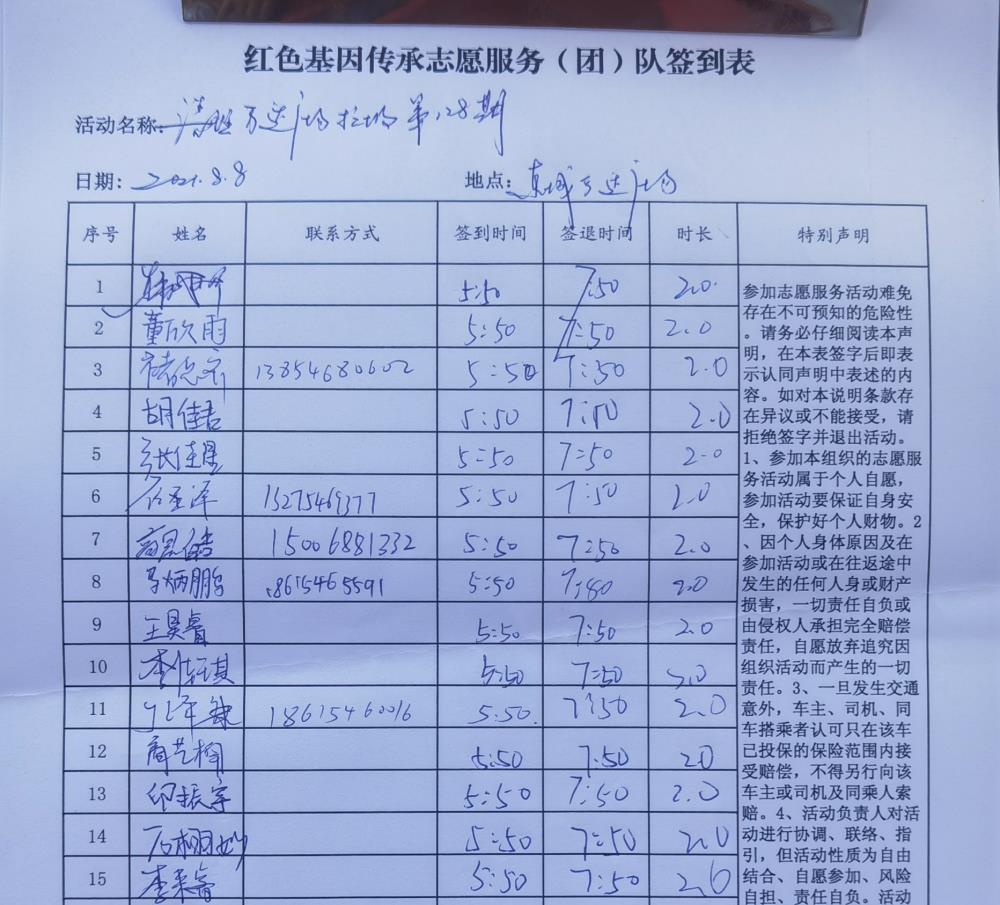 红色基因传承志愿服务（团）队签到表
活动名称: 万达广场 第128期
日期: 2021.8.8 地点: 东城万达广场
序号 姓名 联系方式 签到时间 签退时间 时长 特别声明
1 5:50 7:50 2.0
2 董欣雨 5:50 7:50 2.0
3 13854680602 5:50 7:50 2.0
4 胡佳吉 5:50 7:50 2.0
5 5:50 7:50 2.0
6 石圣泽 15275469377 5:50 7:50 2.0
7 15006881332 5:50 7:50 2.0
8 18615465591 5:50 7:50 2.0
9 王昊睿 5:50 7:50 2.0
10 5:50 7:50 2.0
11 5:50 7:50 2.0
12 商艺桐 5:50 7:50 2.0
13 印振宇 5:50 7:50 2.0
14 5:50 7:50 2.0
15 5:50 7:50 2.0
参加志愿服务活动难免
存在不可预知的危险性
。请务必仔细阅读本声
明，在本表签字后即表
示认同声明中表述的内
容。如对本说明条款存
在异议或不能接受，请
拒绝签字并退出活动。
1、参加本组织的志愿服
务活动属于个人自愿，
参加活动要保证自身安
全，保护好个人财物。2
、因个人身体原因及在
参加活动或在往返途中
发生的任何人身或财产
损害，一切责任自负或
由侵权人承担完全赔偿
责任，自愿放弃追究因
组织活动而产生的一切
责任。3、一旦发生交通
意外，车主、司机、同
车搭乘者认可只在该车
已投保的保险范围内接
受赔偿，不得另行向该
车主或司机及同乘人索
赔。4、活动负责人对活
动进行协调、联络、指
引，但活动性质为自由
结合、自愿参加、风险
自担、责任自负。活动